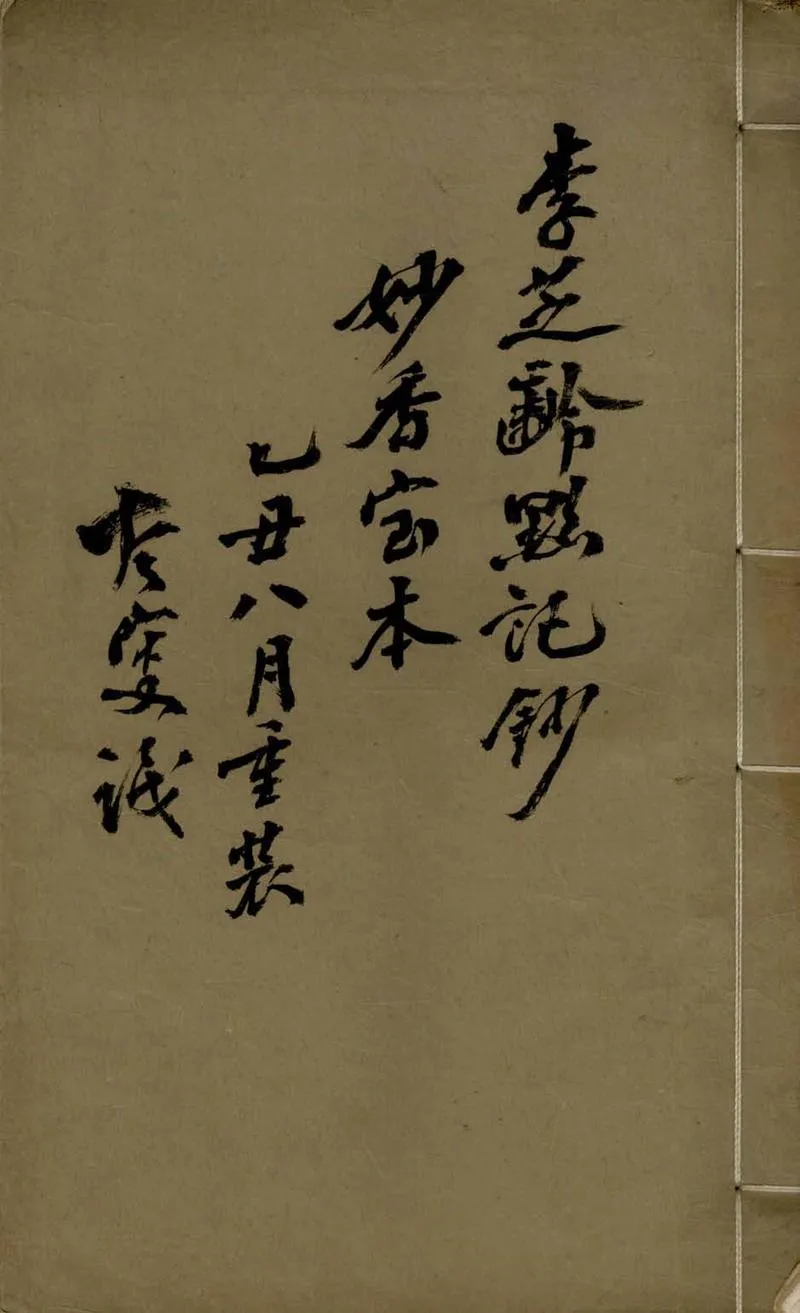 李芝齡黔記鈔
妙香室本
乙丑八月重裝
叜識